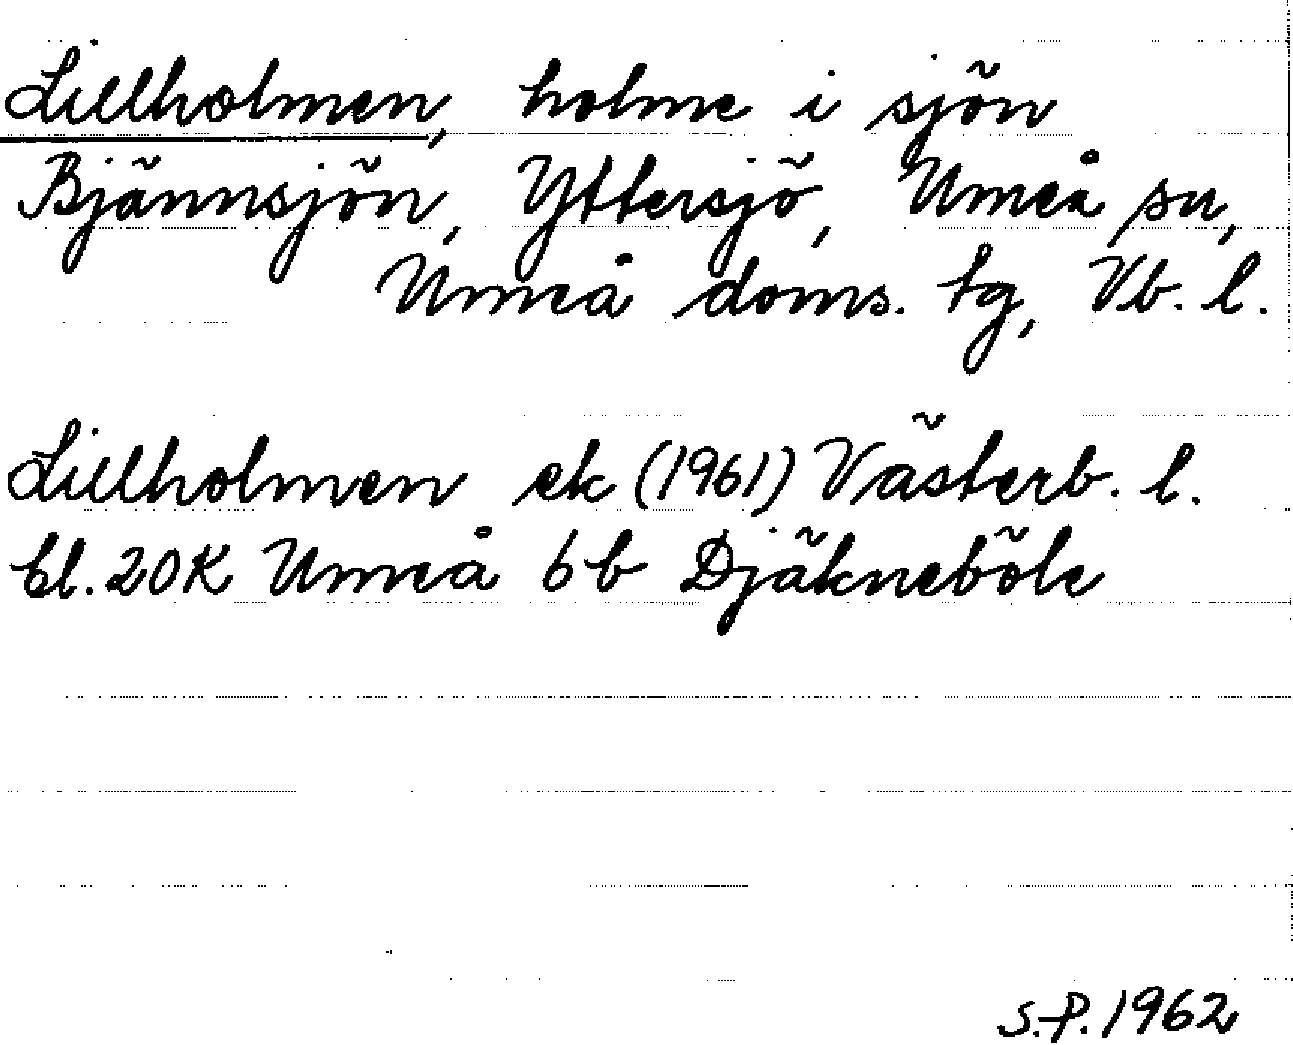 Lillholmen, holme i sjön
Bjännsjön, Yttersjö, Umeå sn,
Umeå doms. tg, Vb. l.
Lillholmen ek (1961) Västerb. l.
bl. 20K Umeå 6b Djäkneböle
S.-P. 1962